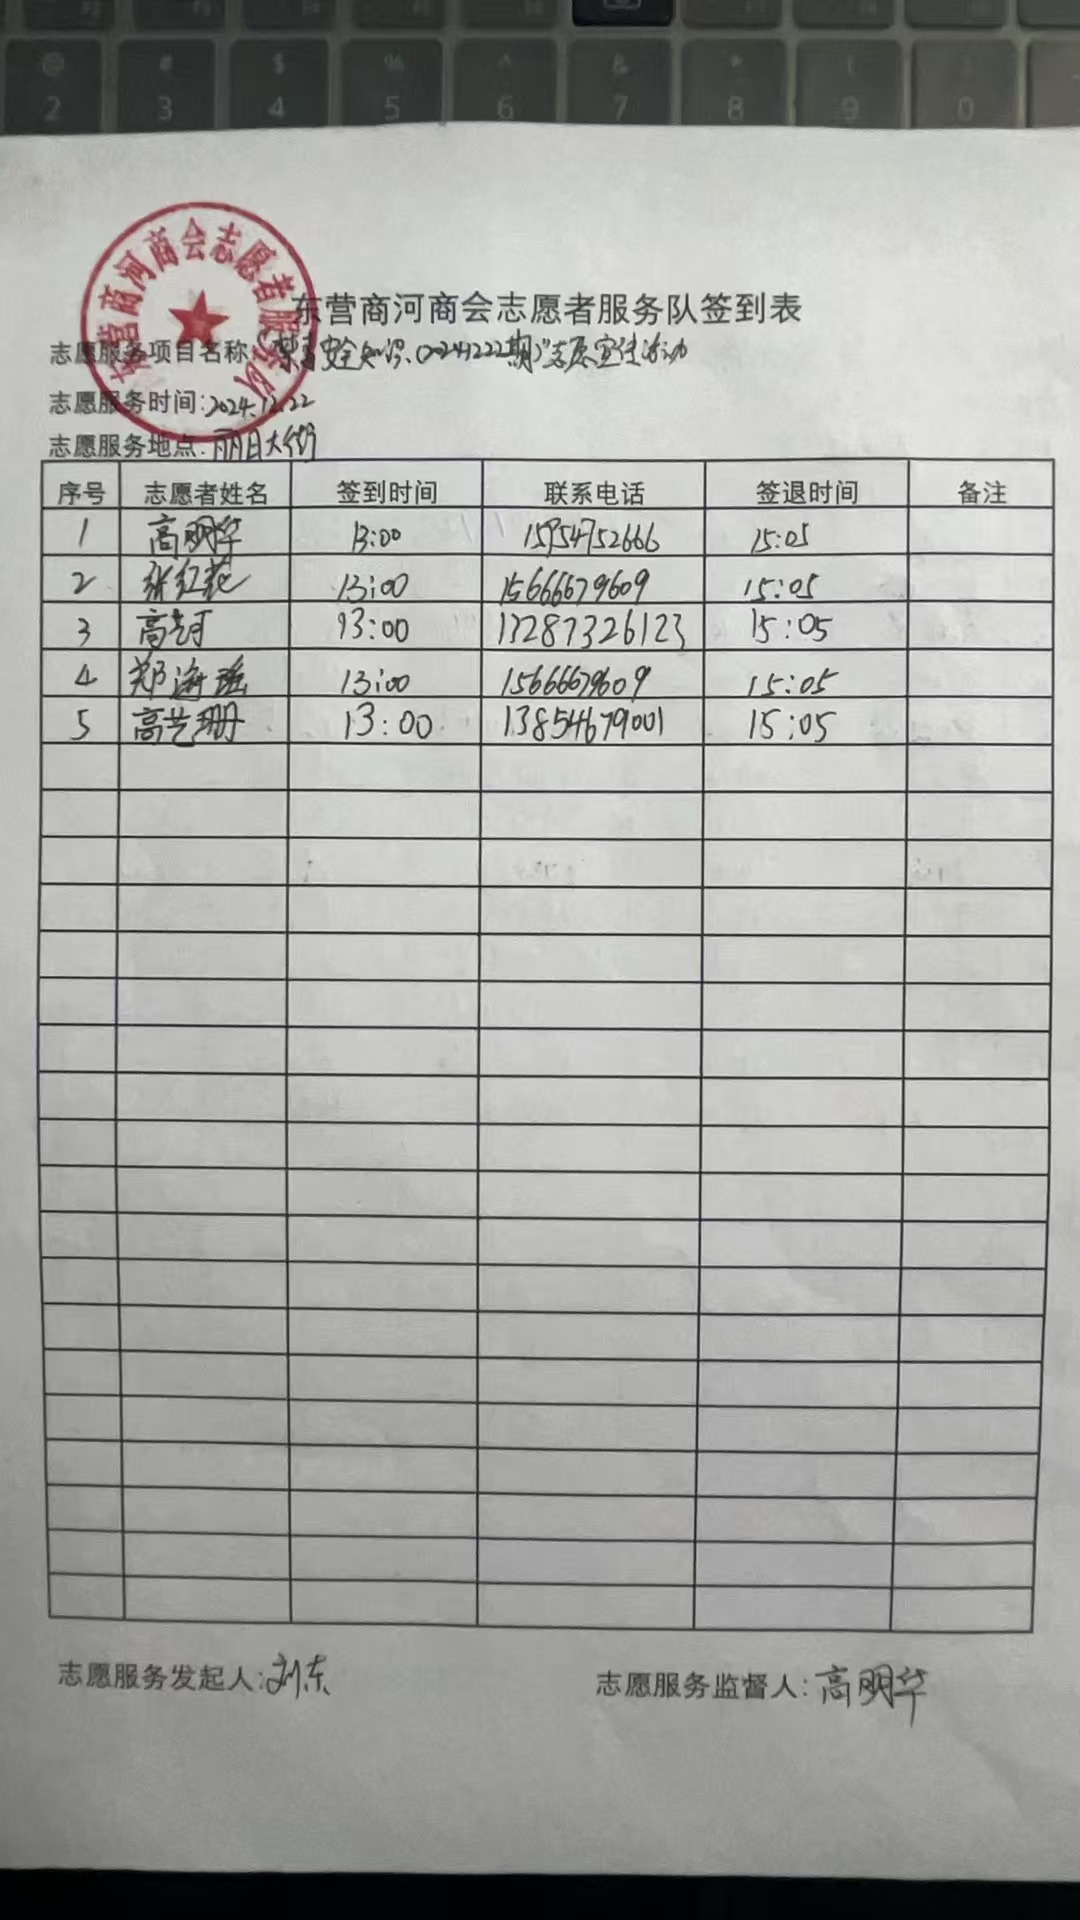 东营商河商会志愿者服务队
东营商河商会志愿者服务队签到表
志愿服务项目名称: 禁毒安全知识(20241222期)"志愿宣传活动
志愿服务时间:2024.12.22
志愿服务地点:丽日大街
序号 志愿者姓名 签到时间 联系电话 签退时间 备注
1 高明华 13:00 15954752666 15:05
2 张红花 13:00 15666679609 15:05
3 高艺可 13:00 17287326123 15:05
4 郑海瑶 13:00 15666679609 15:05
5 高艺珊 13:00 13854679001 15:05
志愿服务发起人:刘东 志愿服务监督人:高明华